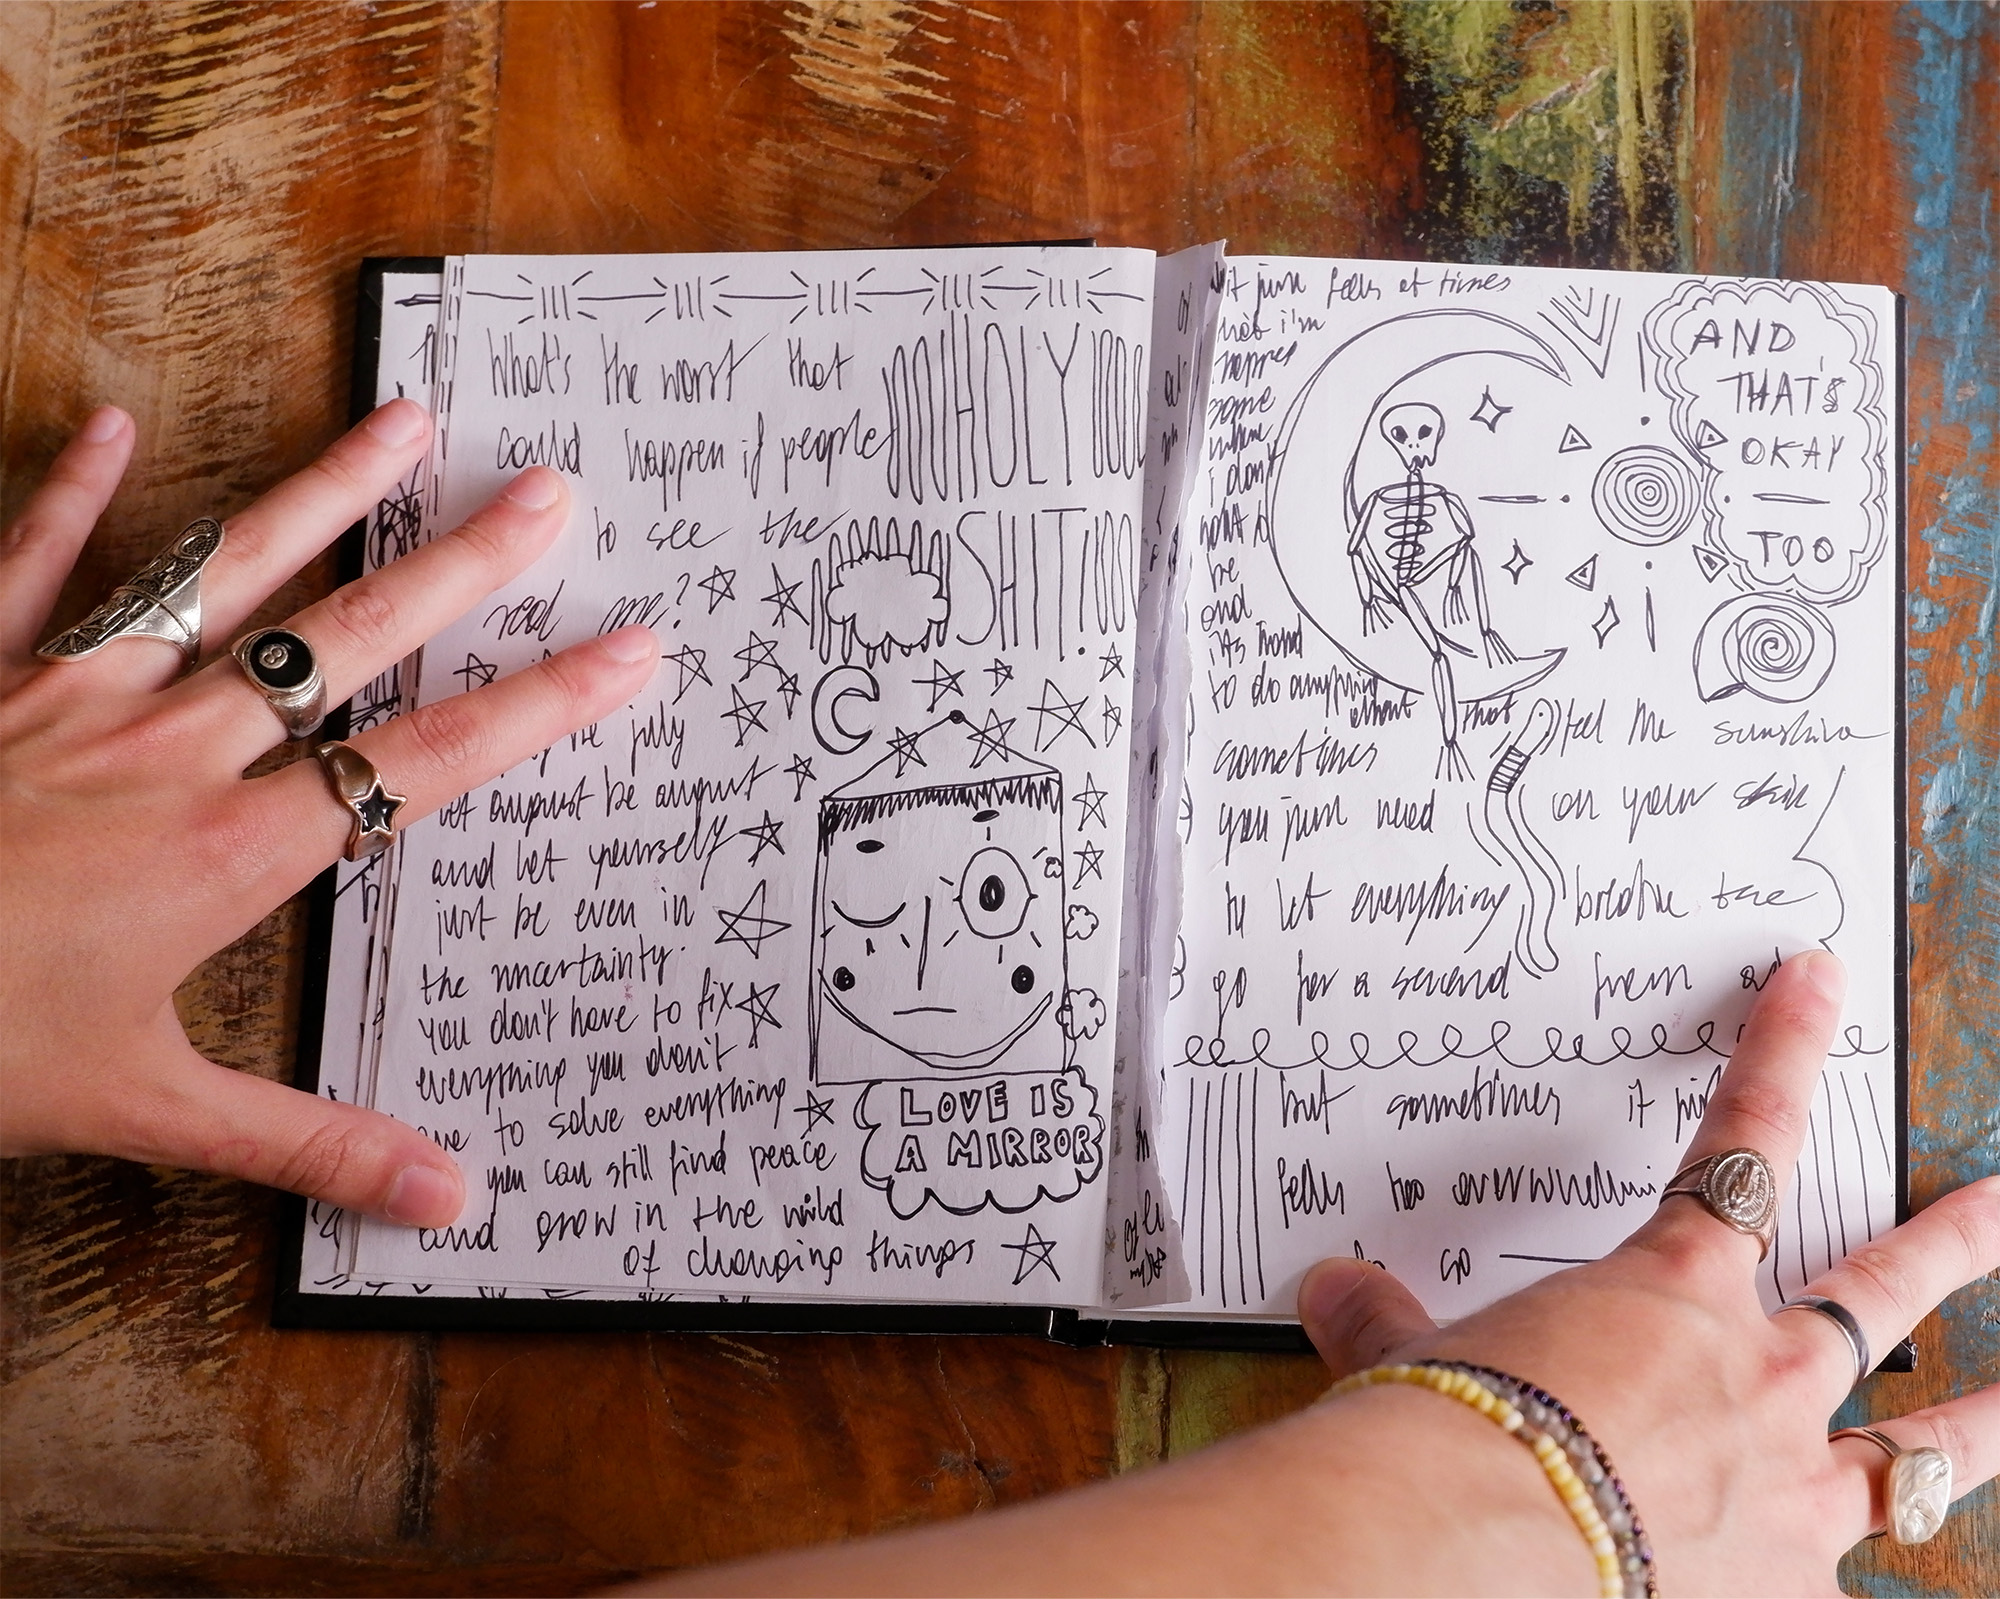 What's the worst that
could happen if people
to see the
real me?
HOLY
SHIT!
july
let august be august
and let yourself
just be even in
the uncertainty.
You don't have to fix
everything you don't
to solve everything
you can still find peace
and grow in the wild
of changing things
LOVE IS
A MIRROR
8
it just feels at times
that i'm
some
where
i don't
want to
be
and
its hard
to do anything
about that
sometimes
you just need
to let everything
go for a second
feel the sunshine
on your skin
breathe the
from
AND
THAT'S
OKAY
—
TOO
but sometimes it
feels too
so —